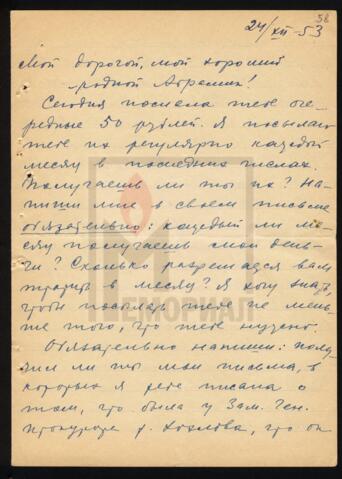 58
24/XII-53
Мой дорогой, мой хороший
родной Абрашик!
Сегодня послала тебе оче-
редные 50 рублей. Я посылаю
тебе их регулярно каждый
месяц в последних числах.
Получаешь ли ты их? На-
пиши мне в своем письме
обязательно: каждый ли ме-
сяц получаешь мои день-
ги? Сколько разрешается вам
тратить в месяц? Я хочу знать,
чтобы посылать тебе не мень-
ше того, что тебе нужно.
Обязательно напиши: полу-
чил ли ты мои письма, в
которых я тебе писала о
том, что была у Зам. Ген.
Прокурора т. Хохлова, что он
МЕМОРИАЛ